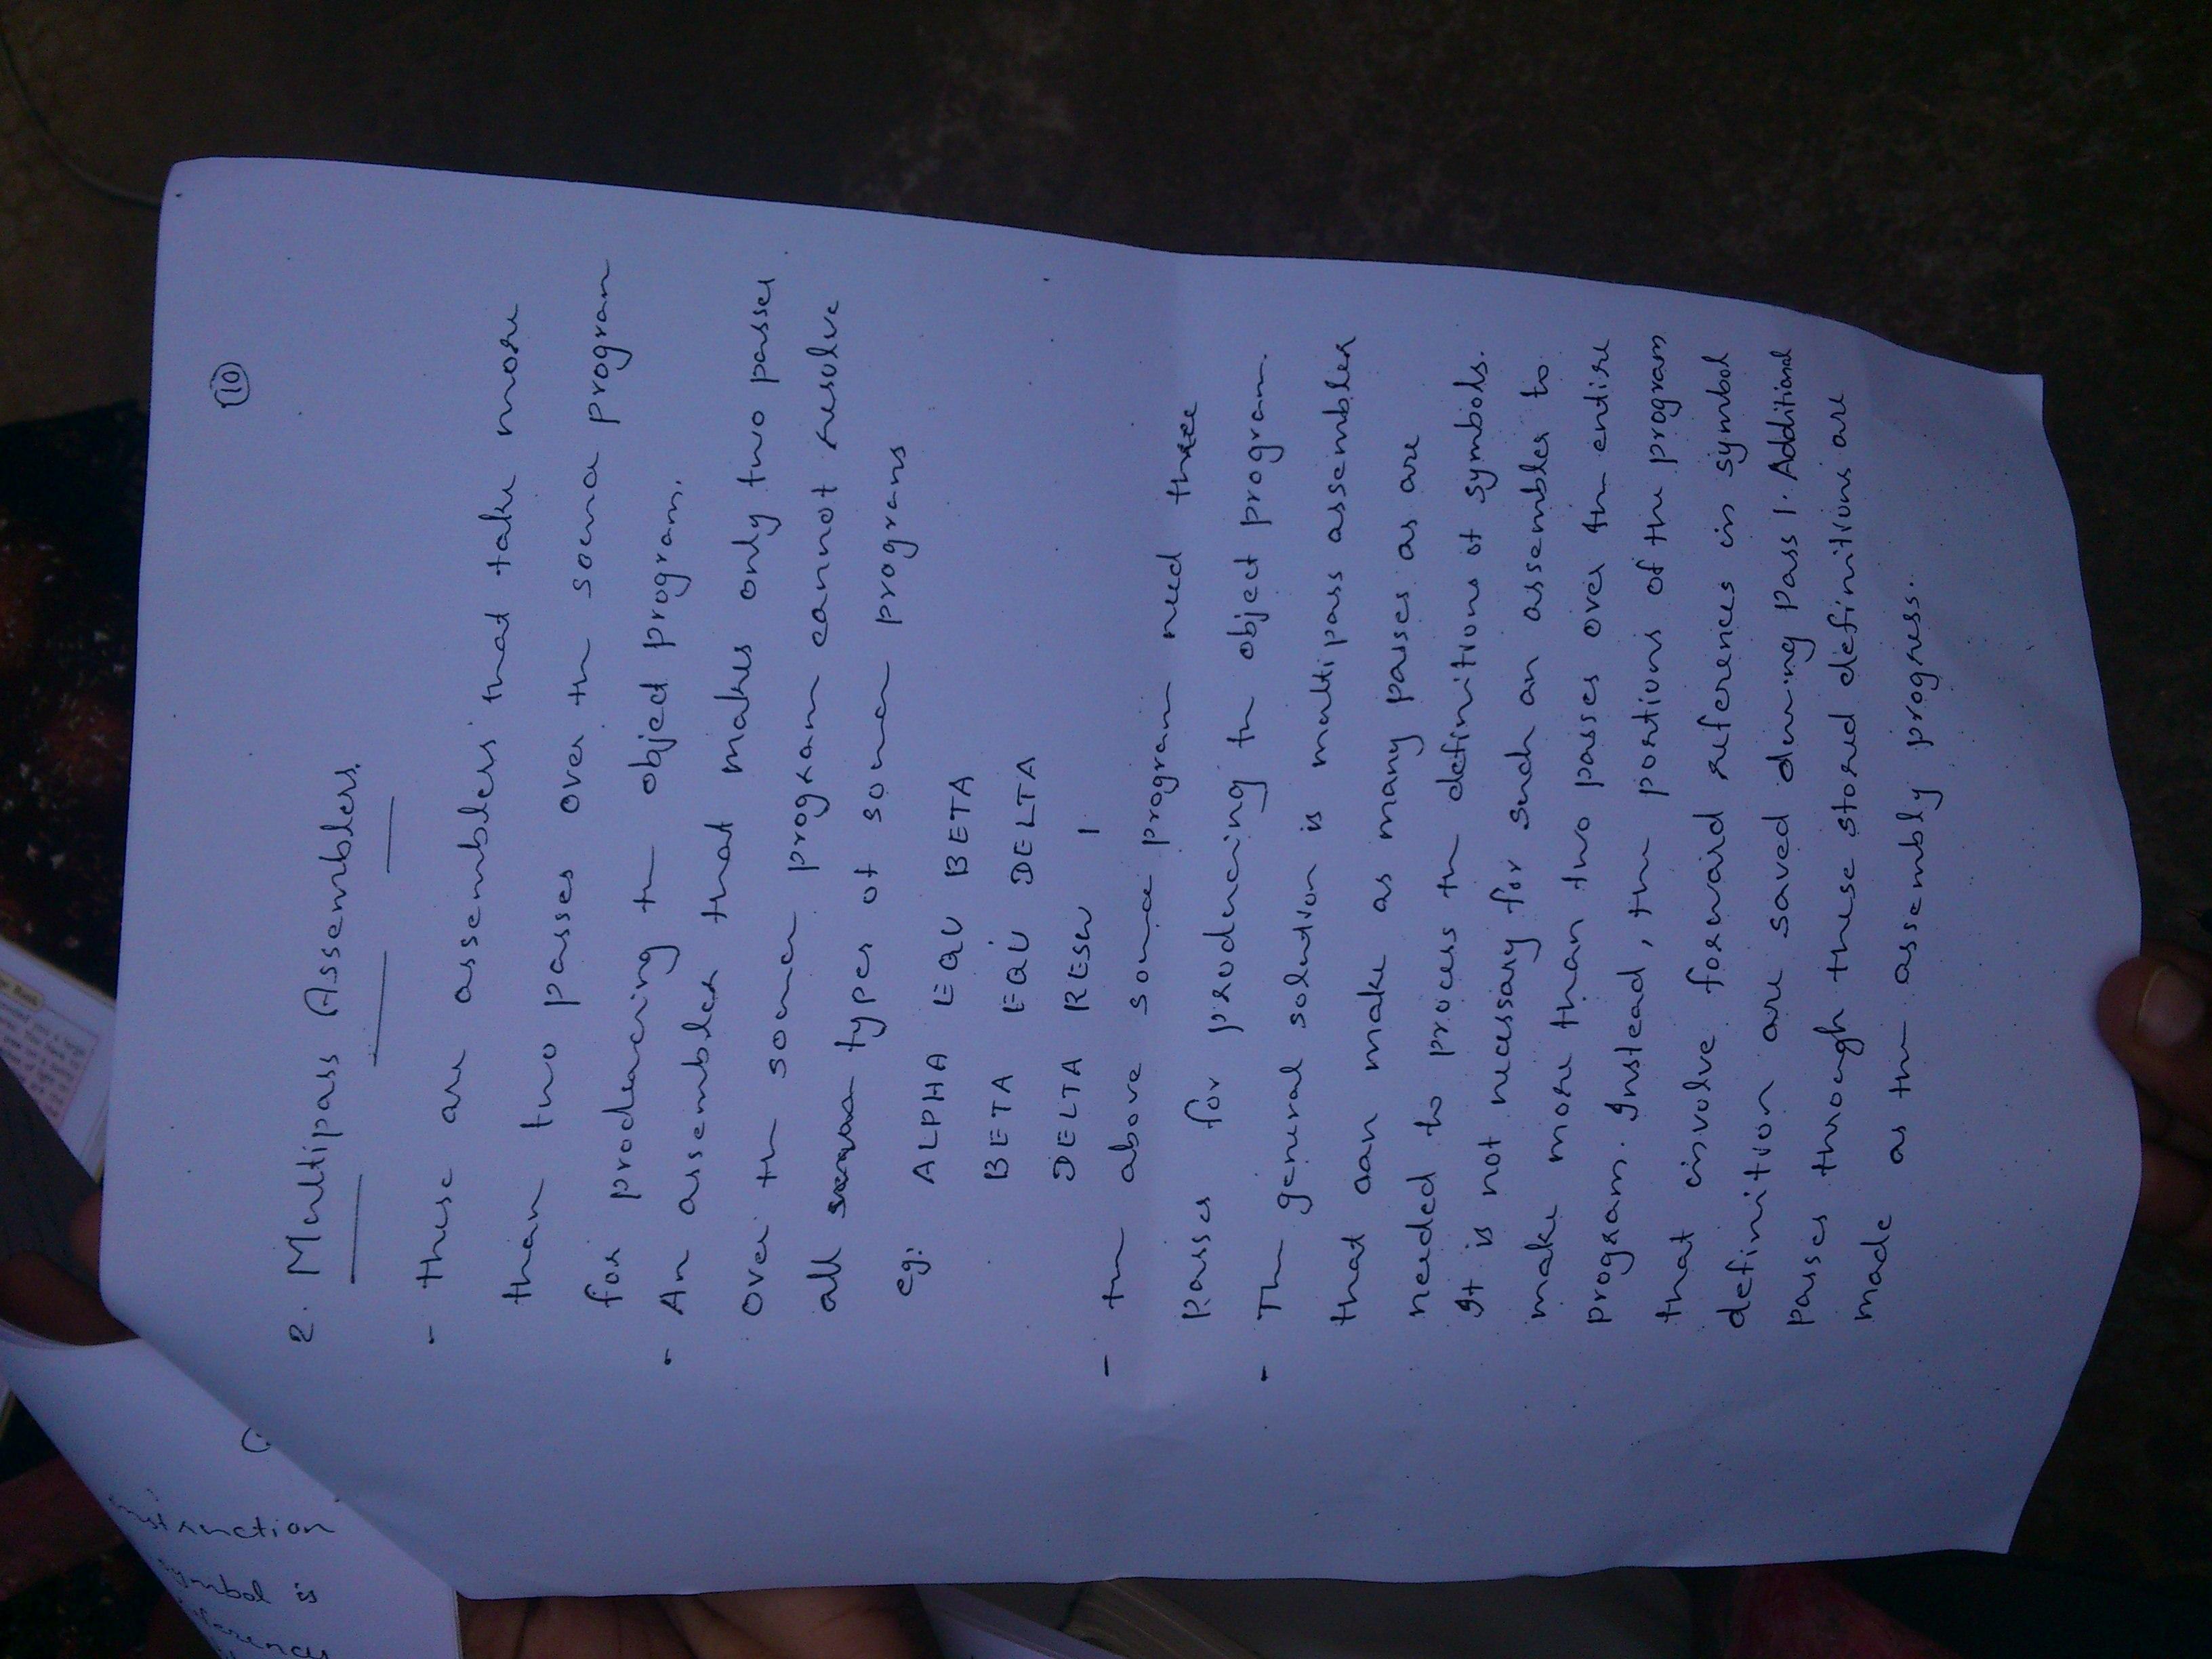 10
2. Multipass Assemblers.
- These are assemblers that take more
than two passes over the source program
for producing the object program.
- An assembler that makes only two passes
over the source program cannot resolve
all types of source programs
eg: ALPHA EQU BETA
BETA EQU DELTA
DELTA RESW 1
- The above source program need three
passes for producing the object program.
- The general solution is multipass assembler
that can make as many passes as are
needed to process the definitions of symbols.
It is not necessary for such an assembler to
make more than two passes over the entire
program. Instead, the portions of the program
that involve forward references in symbol
definition are saved during pass 1. Additional
passes through these stored definitions are
made as the assembly progress..
instruction
symbol is